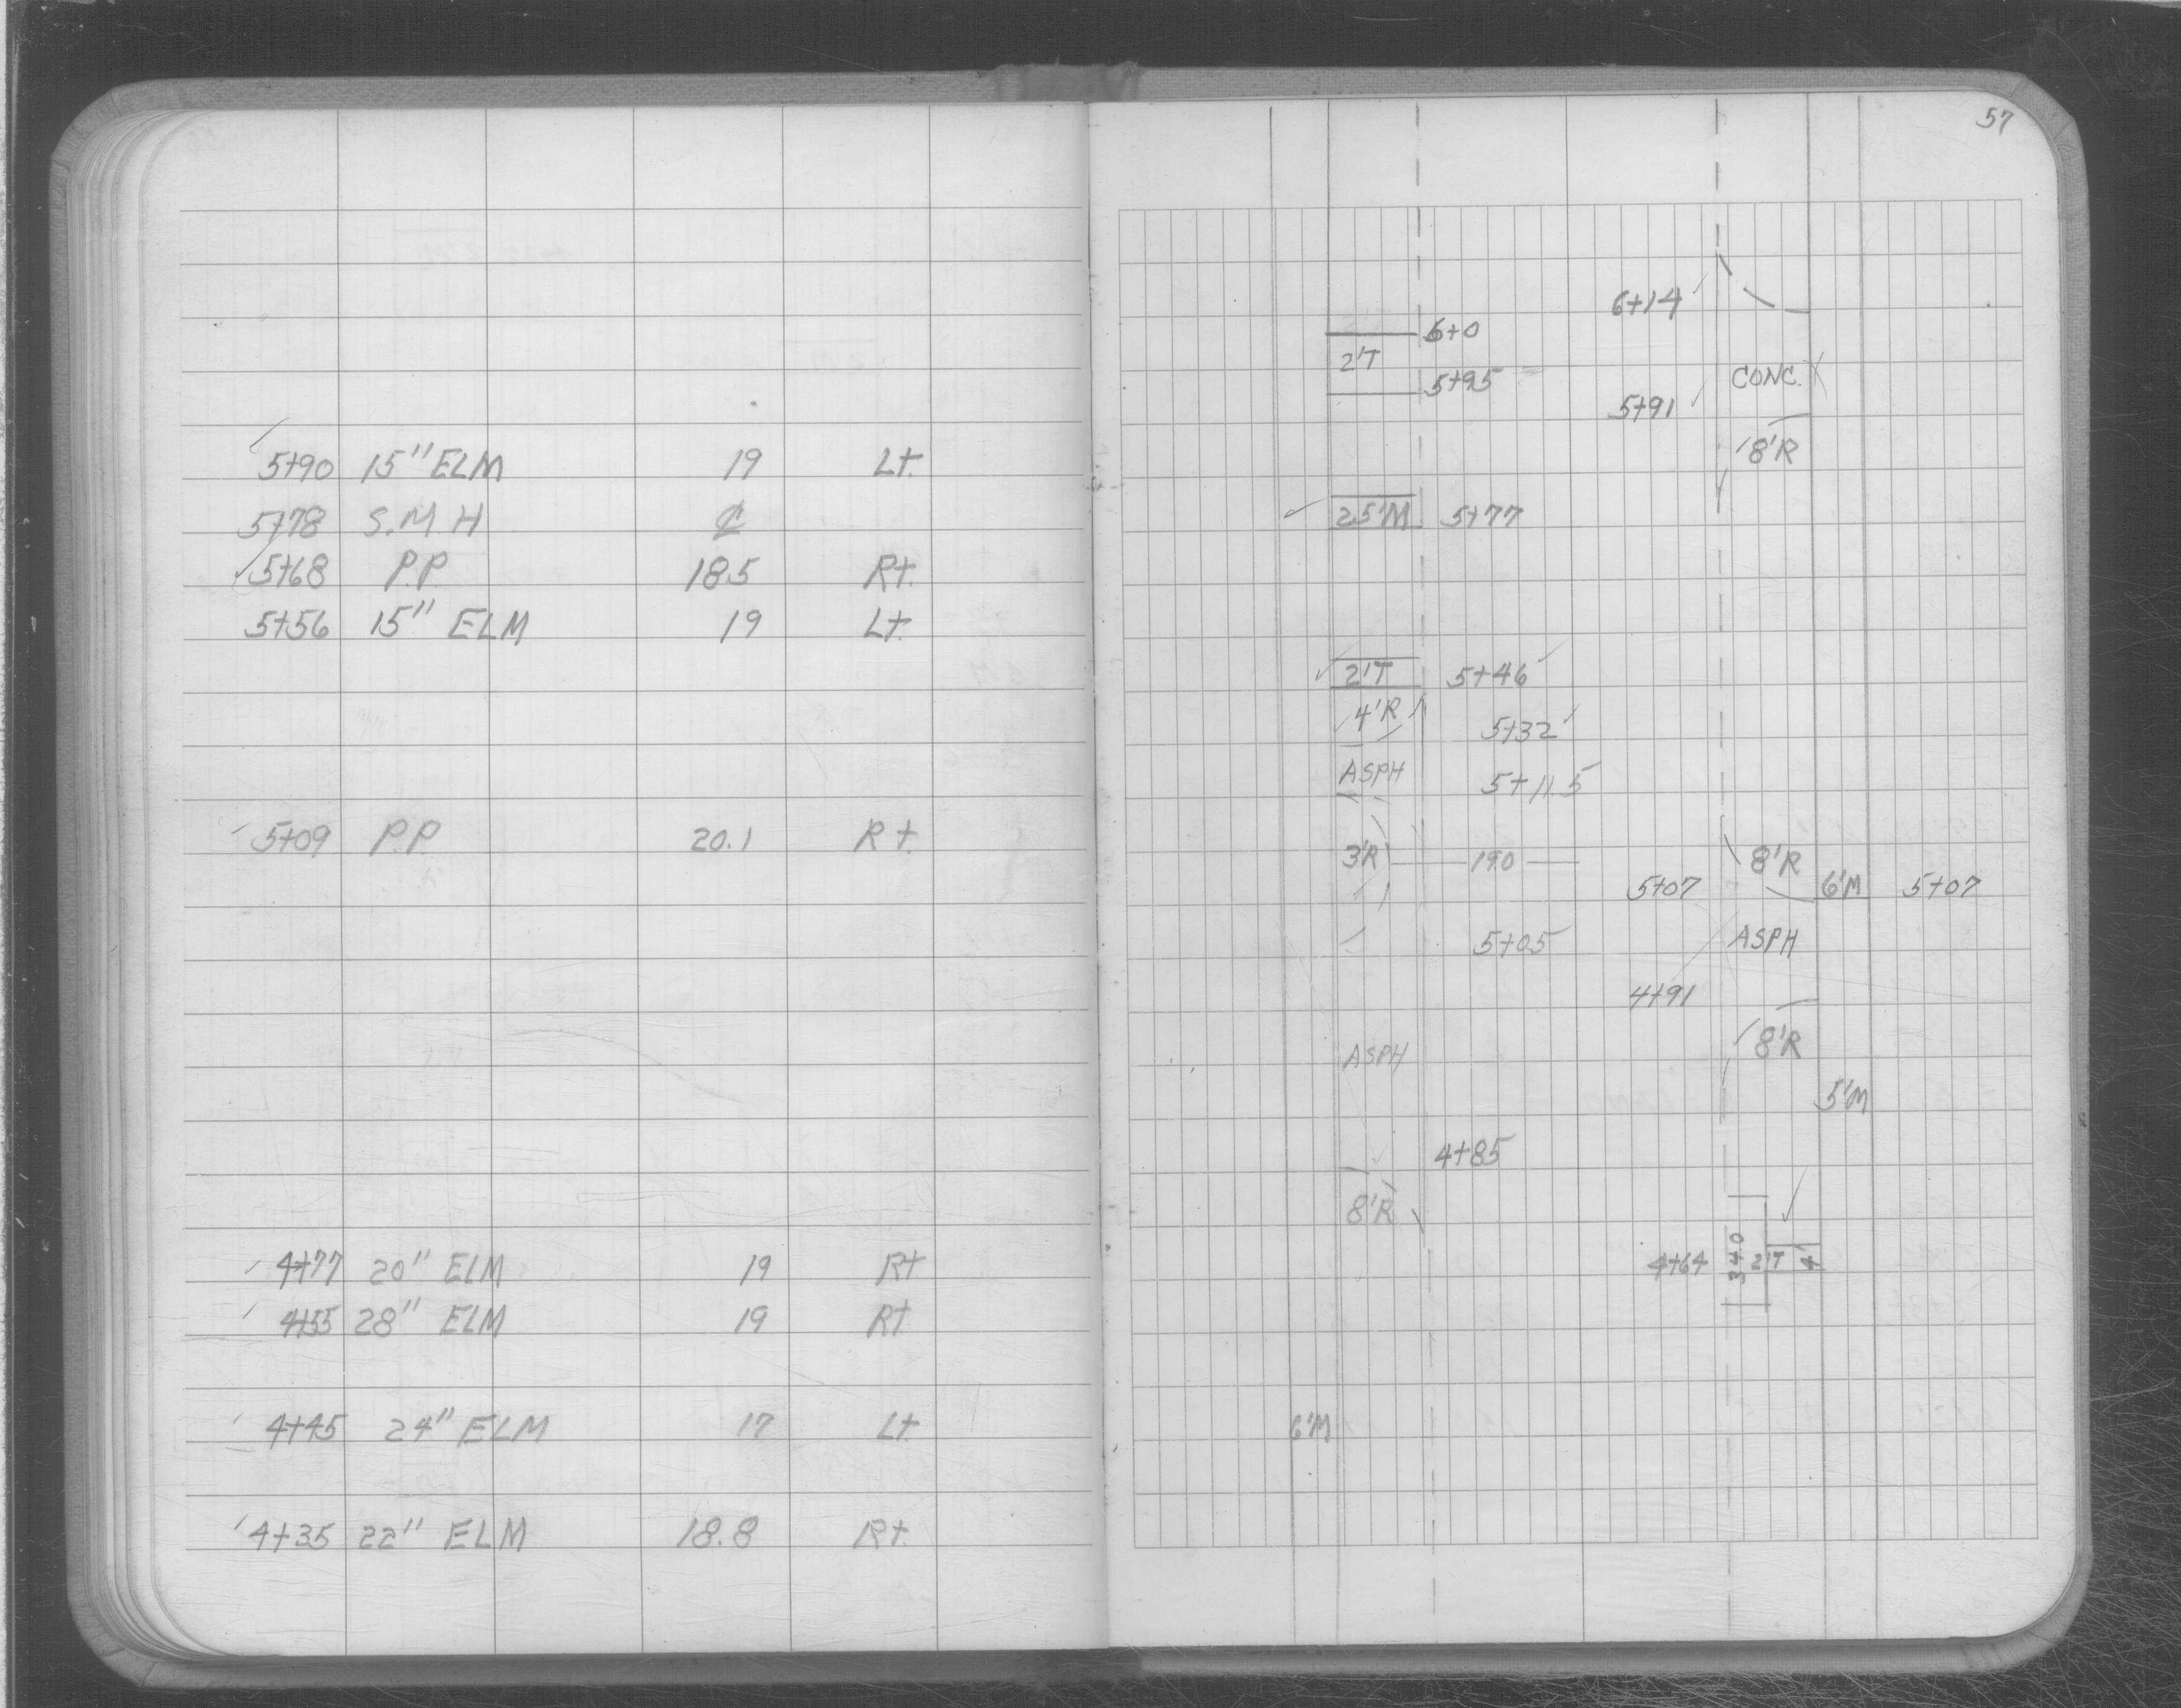 57
5+90 15" ELM 19 Lt.
5+78 S.M.H ℄
5+68 P.P. 18.5 Rt.
5+56 15" ELM 19 Lt.
5+09 P.P. 20.1 Rt.
4+77 20" ELM 19 Rt
4+55 28" ELM 19 Rt
4+45 24" ELM 17 Lt.
4+35 22" ELM 18.8 Rt.
6+14
6+0
2'T
5+95
CONC.
5+91
8'R
2.5'M 5+77
2'T 5+46
4'R 5+32
ASPH 5+11.5
3'R 190 8'R
5+07 6'M 5+07
5+05 ASPH
4+91
ASPH 8'R
5'M
4+85
8'R
4+64 340 2'T 4'
6'M